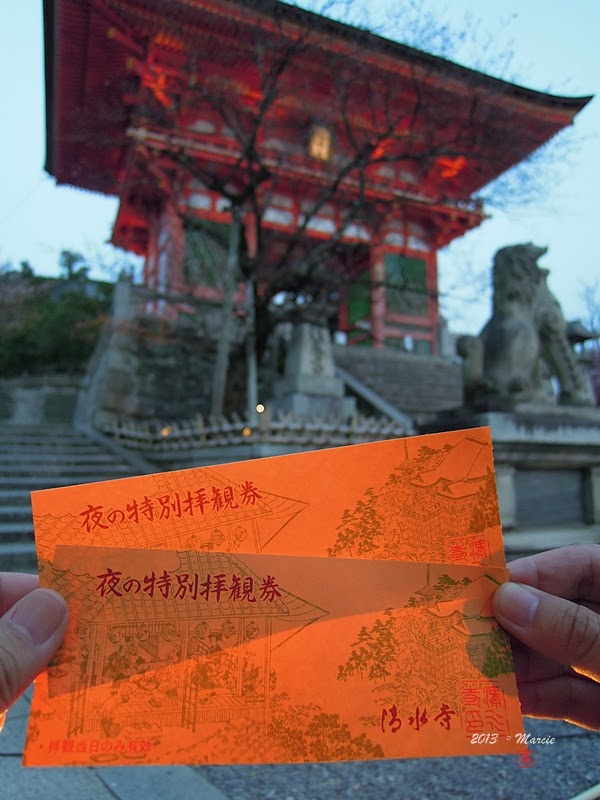 夜の特別拝観券
夜の特別拝観券
清水寺
拝観当日のみ有効
2013 。Marcie